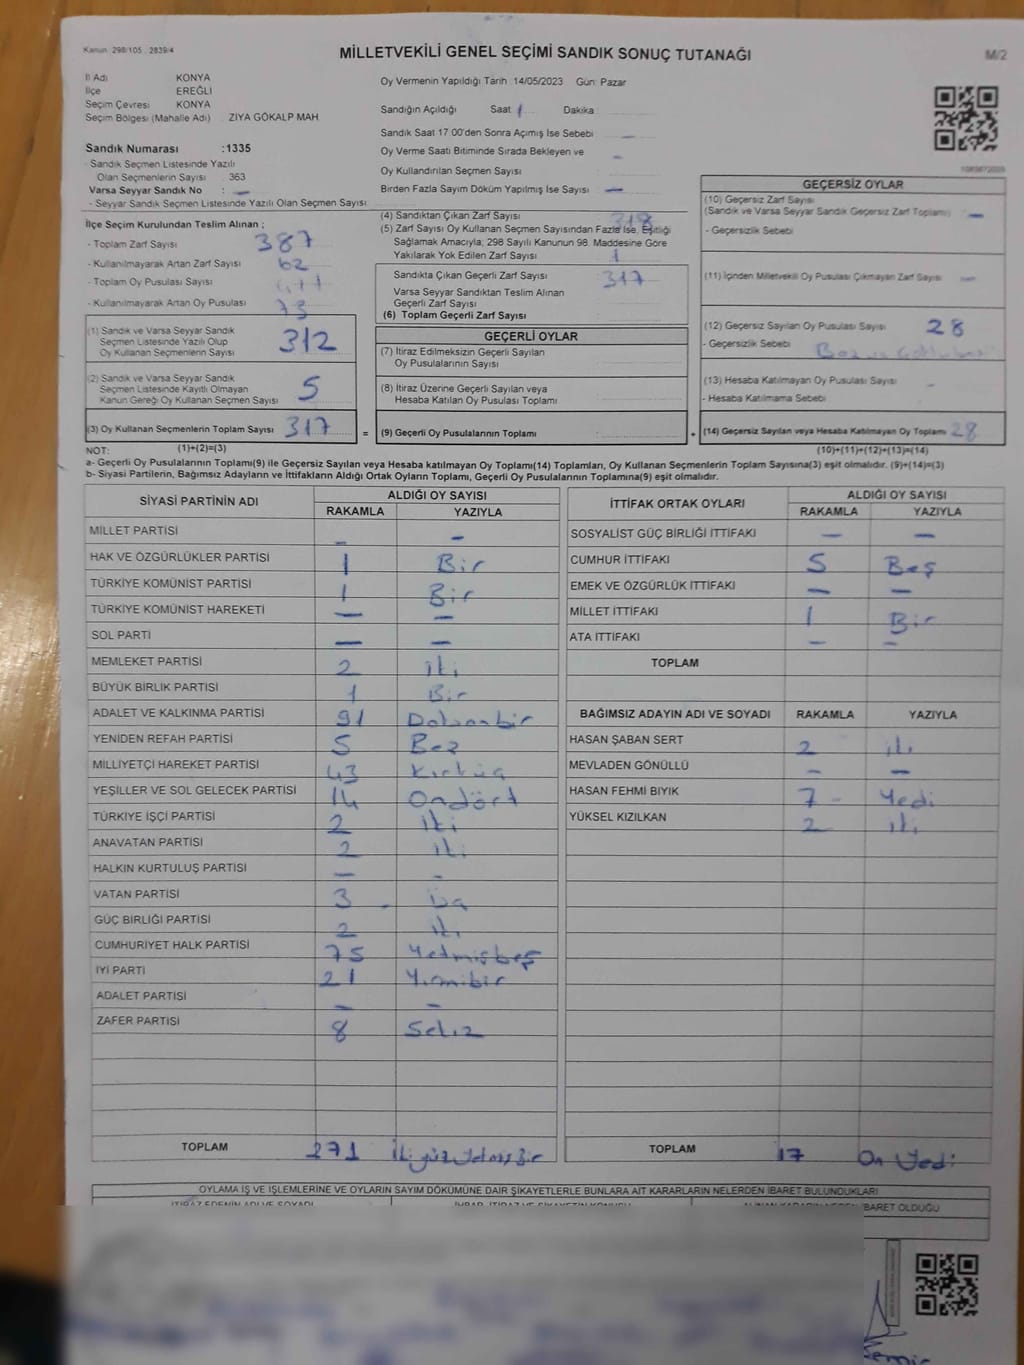 Kanun: 298/105 , 2839/4
MİLLETVEKİLİ GENEL SEÇİMİ SANDIK SONUÇ TUTANAĞI
M/2
İl Adı KONYA
İlçe EREĞLİ
Seçim Çevresi KONYA
Seçim Bölgesi (Mahalle Adı) ZİYA GÖKALP MAH.
Sandık Numarası :1335
- Sandık Seçmen Listesinde Yazılı
Olan Seçmenlerin Sayısı 363
Varsa Seyyar Sandık No : –
- Seyyar Sandık Seçmen Listesinde Yazılı Olan Seçmen Sayısı
Oy Vermenin Yapıldığı Tarih :14/05/2023 Gün: Pazar
Sandığın Açıldığı Saat Dakika
Sandık Saat 17:00'den Sonra Açımış İse Sebebi –
Oy Verme Saati Bitiminde Sırada Bekleyen ve
Oy Kullandırılan Seçmen Sayısı –
Birden Fazla Sayım Döküm Yapılmış İse Sayısı –
İlçe Seçim Kurulundan Teslim Alınan ;
- Toplam Zarf Sayısı 387
- Kullanılmayarak Artan Zarf Sayısı 62
- Toplam Oy Pusulası Sayısı
- Kullanılmayarak Artan Oy Pusulası 73
(1) Sandık ve Varsa Seyyar Sandık
Seçmen Listesinde Yazılı Olup
Oy Kullanan Seçmenlerin Sayısı 312
(2) Sandık ve Varsa Seyyar Sandık
Seçmen Listesinde Kayıtlı Olmayan
Kanun Gereği Oy Kullanan Seçmen Sayısı 5
(3) Oy Kullanan Seçmenlerin Toplam Sayısı 317
(4) Sandıktan Çıkan Zarf Sayısı 318
(5) Zarf Sayısı Oy Kullanan Seçmen Sayısından Fazla İse, Eşitliği
Sağlamak Amacıyla; 298 Sayılı Kanunun 98. Maddesine Göre
Yakılarak Yok Edilen Zarf Sayısı 1
Sandıkta Çıkan Geçerli Zarf Sayısı 317
Varsa Seyyar Sandıktan Teslim Alınan
Geçerli Zarf Sayısı
(6) Toplam Geçerli Zarf Sayısı
GEÇERLİ OYLAR
(7) İtiraz Edilmeksizin Geçerli Sayılan
Oy Pusulalarının Sayısı :
(8) İtiraz Üzerine Geçerli Sayılan veya
Hesaba Katılan Oy Pusulası Toplamı :
= (9) Geçerli Oy Pusulalarının Toplamı : +
GEÇERSİZ OYLAR
(10) Geçersiz Zarf Sayısı
(Sandık ve Varsa Seyyar Sandık Geçersiz Zarf Toplamı) –
- Geçersizlik Sebebi
(11) İçinden Milletvekili Oy Pusulası Çıkmayan Zarf Sayısı –
(12) Geçersiz Sayılan Oy Pusulası Sayısı 28
- Geçersizlik Sebebi
(13) Hesaba Katılmayan Oy Pusulası Sayısı –
- Hesaba Katılmama Sebebi
(14) Geçersiz Sayılan veya Hesaba Katılmayan Oy Toplamı 28
NOT: (1)+(2)=(3) (10)+(11)+(12)+(13)=(14)
a- Geçerli Oy Pusulalarının Toplamı(9) ile Geçersiz Sayılan veya Hesaba katılmayan Oy Toplamı(14) Toplamları, Oy Kullanan Seçmenlerin Toplam Sayısına(3) eşit olmalıdır. (9)+(14)=(3)
b- Siyasi Partilerin, Bağımsız Adayların ve İttifakların Aldığı Ortak Oyların Toplamı, Geçerli Oy Pusulalarının Toplamına(9) eşit olmalıdır.
SİYASİ PARTİNİN ADI ALDIĞI OY SAYISI
RAKAMLA YAZIYLA
MİLLET PARTİSİ – –
HAK VE ÖZGÜRLÜKLER PARTİSİ 1 Bir
TÜRKİYE KOMÜNİST PARTİSİ 1 Bir
TÜRKİYE KOMÜNİST HAREKETİ – –
SOL PARTİ – –
MEMLEKET PARTİSİ 2 iki
BÜYÜK BİRLİK PARTİSİ 1 Bir
ADALET VE KALKINMA PARTİSİ 91 Doksanbir
YENİDEN REFAH PARTİSİ 5 Beş
MİLLİYETÇİ HAREKET PARTİSİ 43 Kırküç
YEŞİLLER VE SOL GELECEK PARTİSİ 14 Ondört
TÜRKİYE İŞÇİ PARTİSİ 2 iki
ANAVATAN PARTİSİ 2 iki
HALKIN KURTULUŞ PARTİSİ – –
VATAN PARTİSİ 3 Üç
GÜÇ BİRLİĞİ PARTİSİ 2 iki
CUMHURİYET HALK PARTİSİ 75 Yetmişbeş
İYİ PARTİ 21 Yirmibir
ADALET PARTİSİ – –
ZAFER PARTİSİ 8 Sekiz
TOPLAM 271 İkiyüzyetmişbir
İTTİFAK ORTAK OYLARI ALDIĞI OY SAYISI
RAKAMLA YAZIYLA
SOSYALİST GÜÇ BİRLİĞİ İTTİFAKI – –
CUMHUR İTTİFAKI 5 Beş
EMEK VE ÖZGÜRLÜK İTTİFAKI – –
MİLLET İTTİFAKI 1 Bir
ATA İTTİFAKI – –
TOPLAM
BAĞIMSIZ ADAYIN ADI VE SOYADI RAKAMLA YAZIYLA
HASAN ŞABAN SERT 2 iki
MEVLADEN GÖNÜLLÜ – –
HASAN FEHMİ BIYIK 7 Yedi
YÜKSEL KIZILKAN 2 iki
TOPLAM 17 On Yedi
OYLAMA İŞ VE İŞLEMLERİNE VE OYLARIN SAYIM DÖKÜMÜNE DAİR ŞİKAYETLERLE BUNLARA AİT KARARLARIN NELERDEN İBARET BULUNDUKLARI
İTİRAZ EDENİN ADI VE SOYADI İHBAR, İTİRAZ VE ŞİKAYETİN KONUSU ALINAN KARARIN NEDEN İBARET OLDUĞU